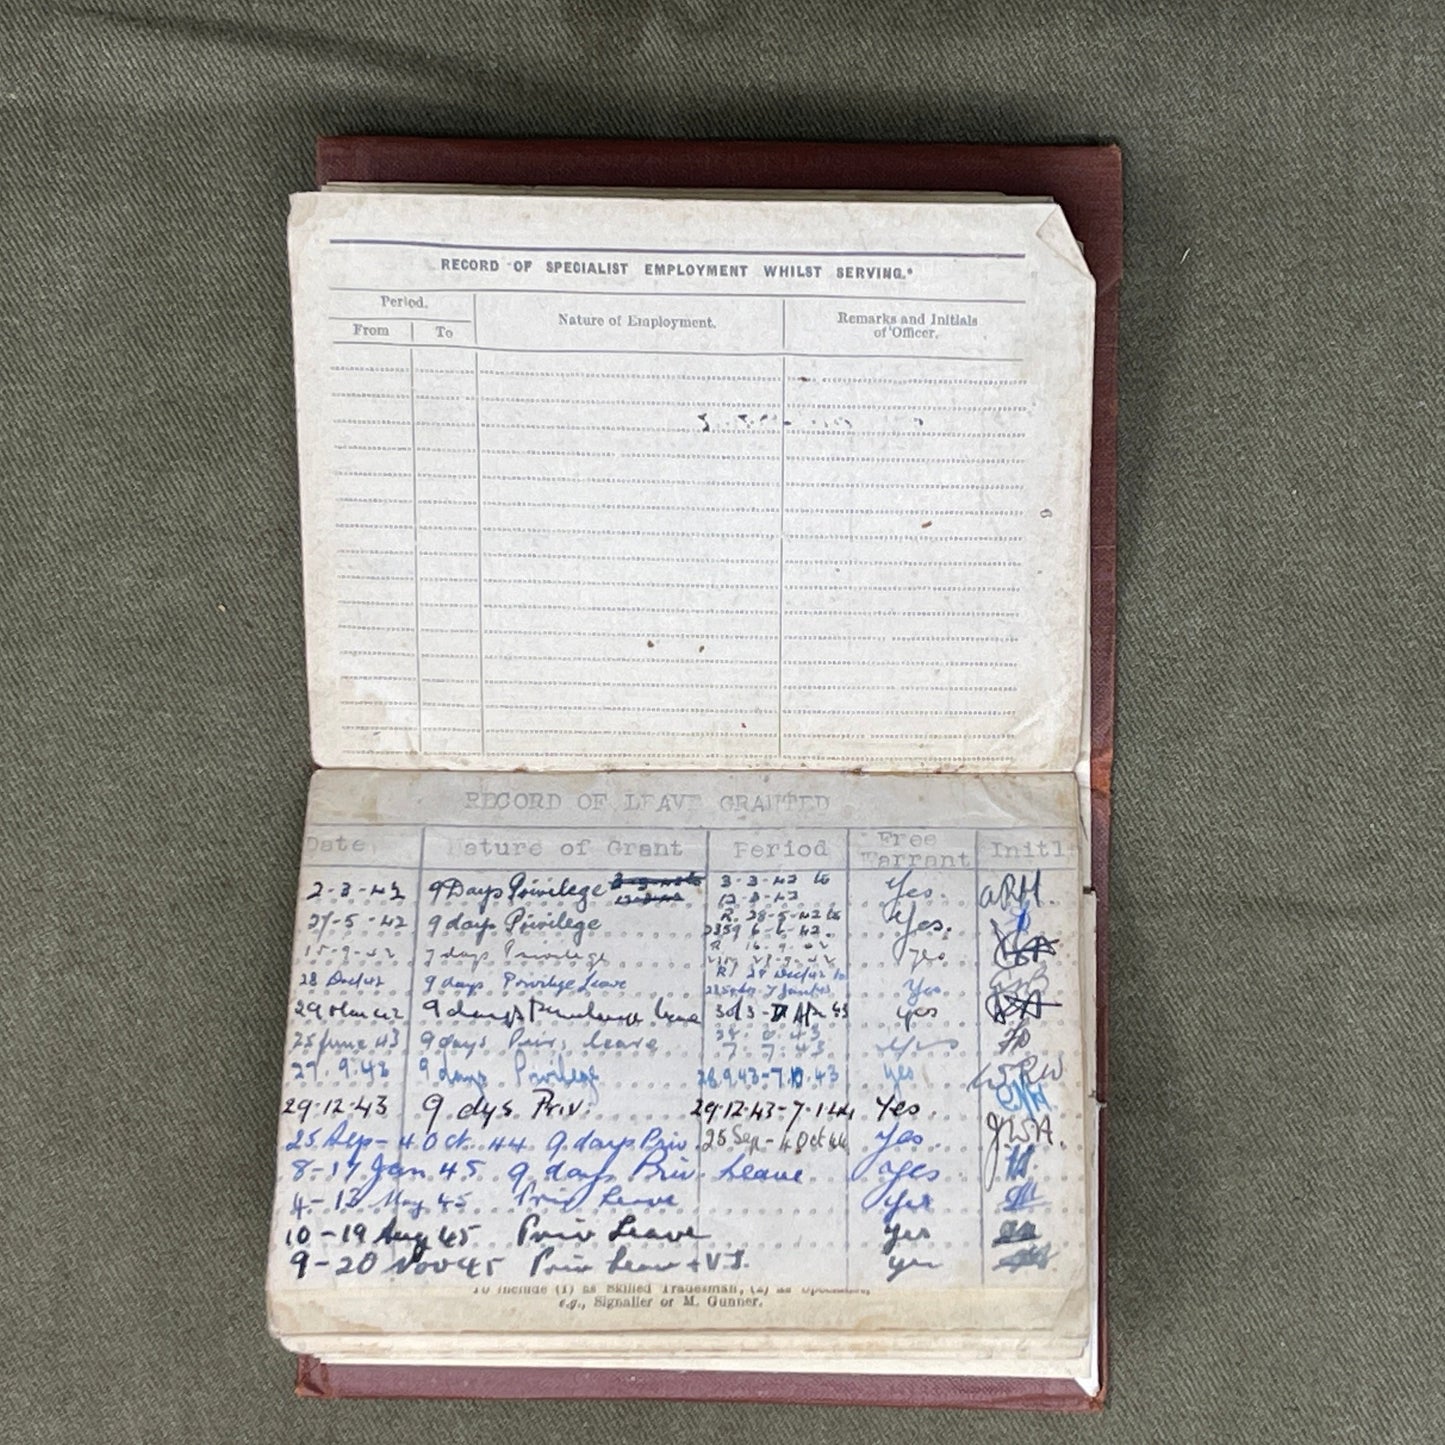 RECORD OF SPECIALIST EMPLOYMENT WHILST SERVING.*
Period.
From To
Nature of Employment.
Remarks and Initials
of Officer.
9
RECORD OF LEAVE GRANTED
Date Nature of Grant Period Free Warrant Initl
2-3-42 9 Days Privilege 3-3-42 to 12-3-42 Yes. ARH.
27-5-42 9 days Privilege R. 28-5-42 to 2359 6-6-42. Yes.
15-9-42 7 days Privilege R 16.9.42 23-9-42 yes
28 Dec 42 9 days Privilege Leave R/ 29 Dec 42 to 2359 7 Jan 43 Yes
29 Mar 9 days Privilege leave Apr 43 yes
25 June 43 9 days Priv. leave 7.7.43
27.9.43 9 days Privilege 28.9.43-7.10.43 yes
29.12.43 9 dys Priv. 29.12.43-7.1.44 Yes.
25 Sep-4 Oct. 44 9 days Priv. 25 Sep-4 Oct 44 yes. JWH.
8-17 Jan 45 9 days Priv. Leave yes
4-13 May 45 Priv Leave Yes
10-19 Aug 45 Priv Leave yes
9-20 Nov 45 Priv Leave + V.J. yes
To include (1) as Skilled Tradesman, (2) as Specialist,
e.g., Signaller or M. Gunner.